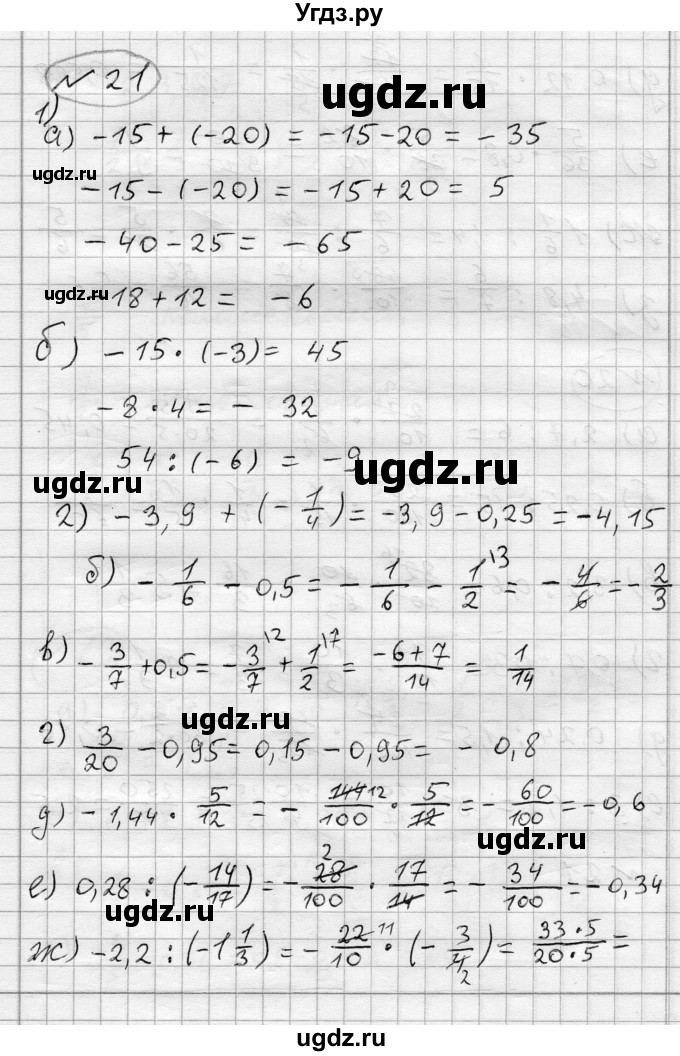 Угдз.ру
№ 21
ugdz.ru
1)
а) -15 + (-20) = -15-20 = - 35
ugdz.ru
-15 - (-20) = -15 + 20 = 5
- 40 - 25 = - 65
ugdz.ru
18 + 12 = - 6
б) - 15 · (-3) = 45
- 8 · 4 = - 32
54 : (-6) = - 9
ugdz.ru
ugdz.ru
2) - 3,9 + (- 1/4) = -3,9 - 0,25 = -4,15
б) - 1/6 - 0,5 = - 1/6 - 1/2 \3 = - 4/6 = - 2/3
в) - 3/7 + 0,5 = - 3/7 \2 + 1/2 \7 = (-6+7)/14 = 1/14
ugdz.ru
г) 3/20 - 0,95 = 0,15 - 0,95 = - 0,8
д) - 1,44 · 5/12 = - 144 12/100 · 5/12 = - 60/100 = -0,6
ugdz.ru
е) 0,28 : (- 14/17) = - 2 28/100 · 17/14 = - 34/100 = - 0,34
ж) - 2,2 : (-1 1/3) = - 22 11/10 · (- 3/4 2) = 33·5/20·5 =
ugdz.ru